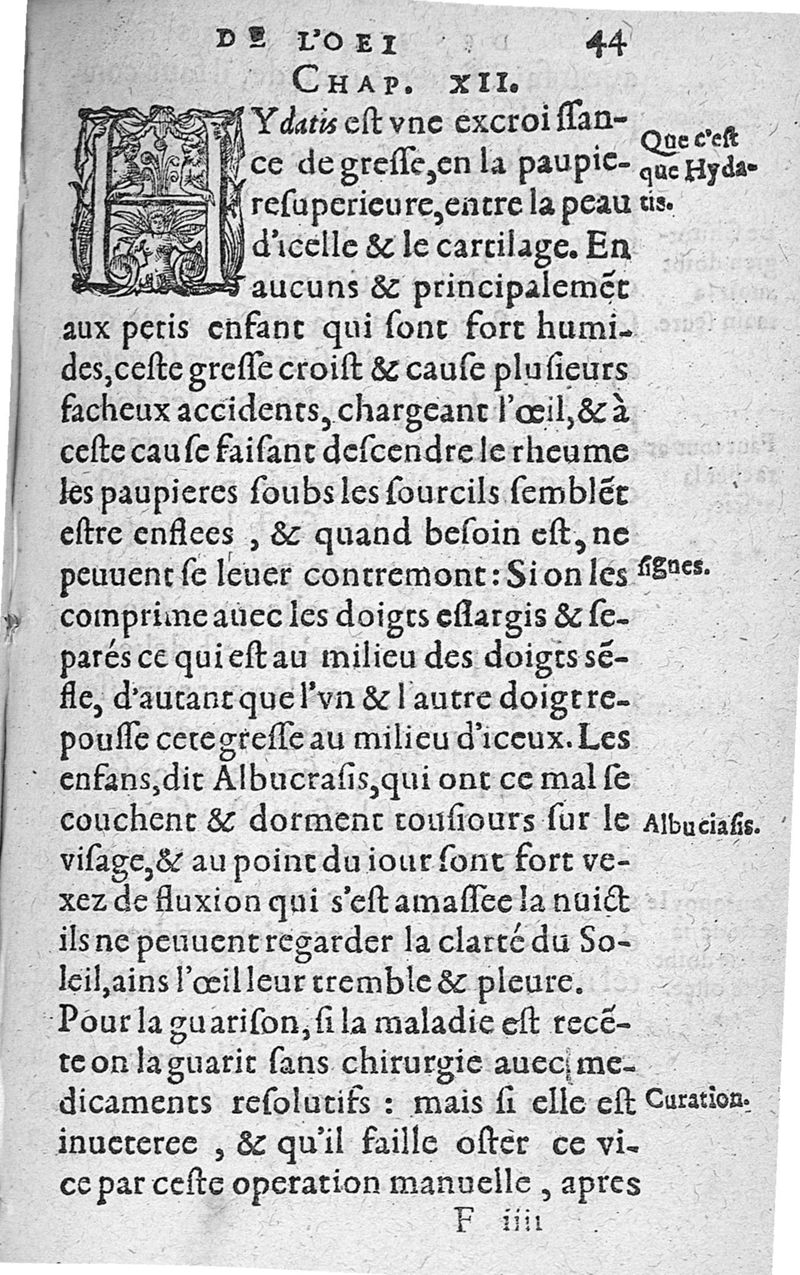 DE L'OEI 44
CHAP. XII.
HYdatis est vne excroissan-
ce de gresse, en la paupie-
re superieure, entre la peau
d'icelle & le cartilage. En
aucuns & principalemẽt
aux petis enfant qui sont fort humi-
des, ceste gresse croist & cause plusieurs
facheux accidents, chargeant l'œil, & à
ceste cause faisant descendre le rheume
les paupieres soubs les sourcils semblẽt
estre enflees , & quand besoin est, ne
peuuent se leuer contremont : Si on les
comprime auec les doigts eslargis & se-
parés ce qui est au milieu des doigts sẽ-
fle, d'autant que l'vn & l'autre doigt re-
pousse cete gresse au milieu d'iceux. Les
enfans, dit Albucrasis, qui ont ce mal se
couchent & dorment tousiours sur le
visage, & au point du iour sont fort ve-
xez de fluxion qui s'est amassee la nuict
ils ne peuuent regarder la clarté du So-
leil, ains l'œil leur tremble & pleure.
Pour la guarison, si la maladie est recẽ-
te on la guarit sans chirurgie auec me-
dicaments resolutifs : mais si elle est
inueteree , & qu'il faille oster ce vi-
ce par ceste operation manuelle , apres
F iiii
Que c'est
que Hyda-
tis.
signes.
Albuciasis.
Curation.